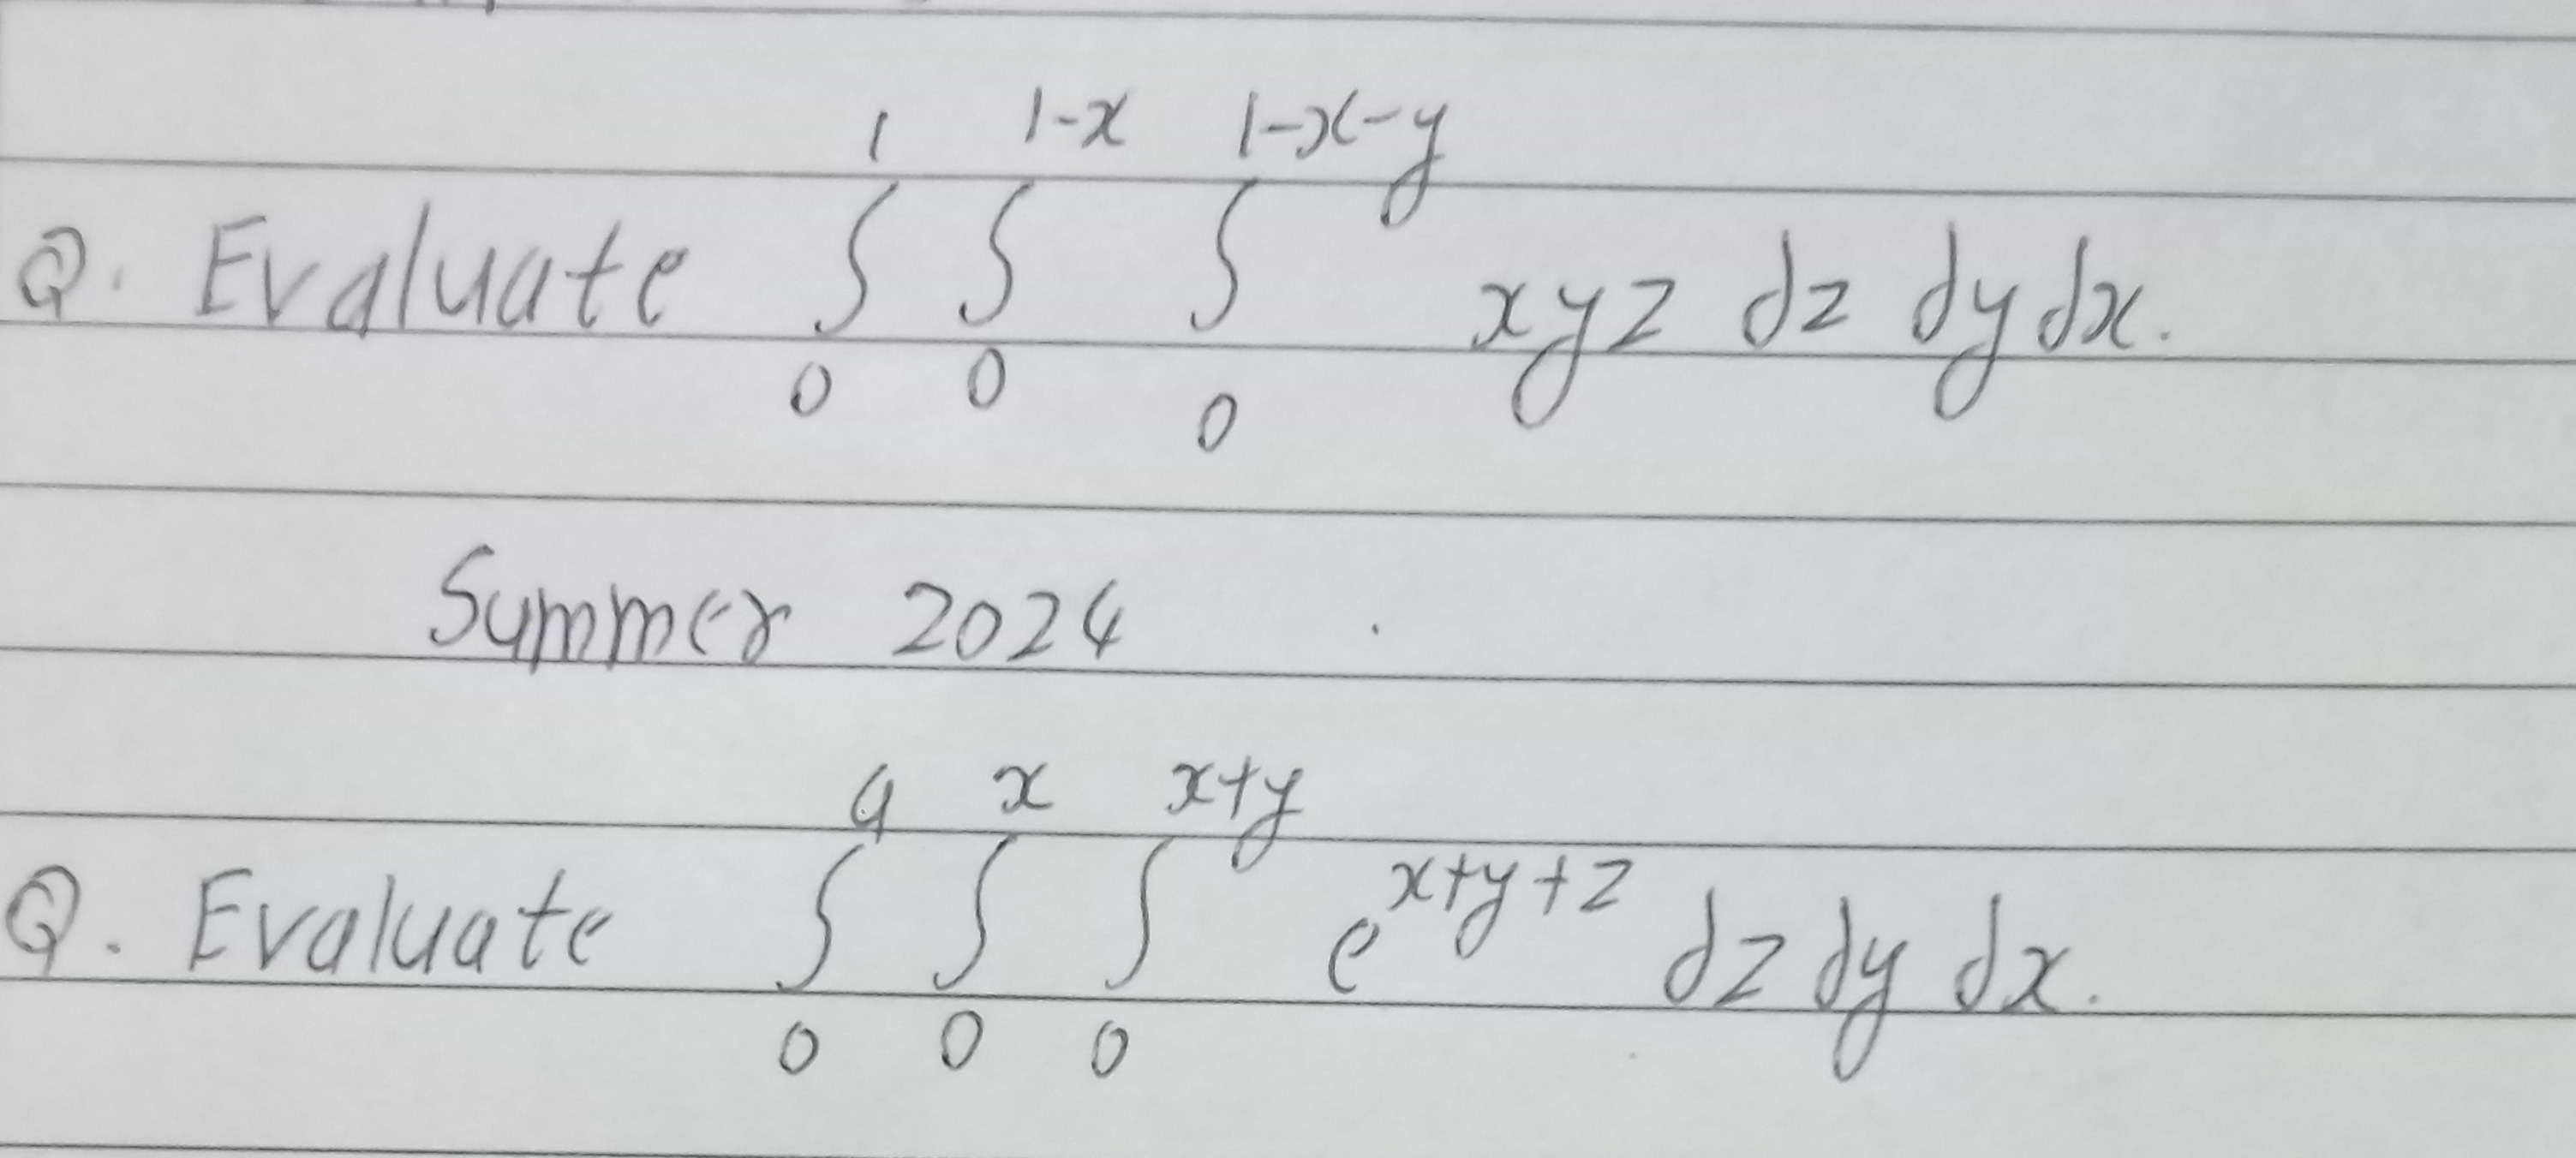 Q. Evaluate ∫₀¹ ∫₀^{1-x} ∫₀^{1-x-y} xyz dz dy dx.
Summer 2024
Q. Evaluate ∫₀^{a} ∫₀^{x} ∫₀^{x+y} e^{x+y+z} dz dy dx.